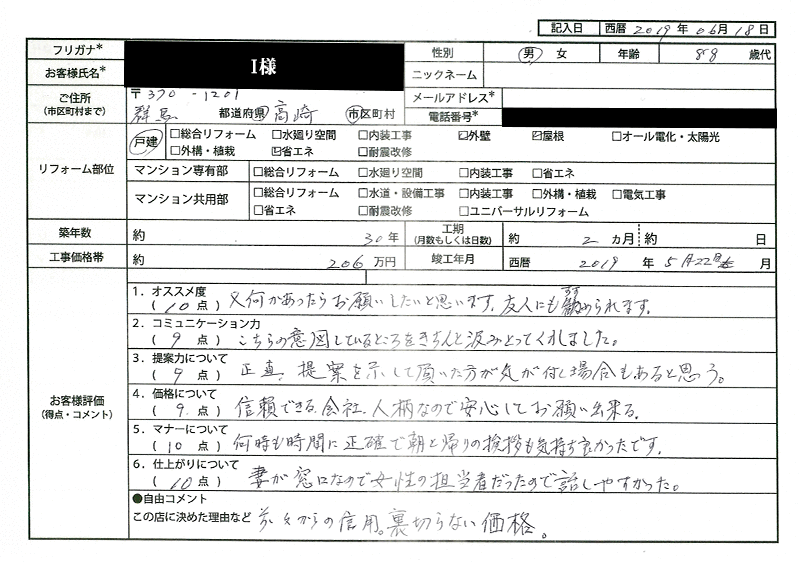 記入日 西暦 2019 年 06 月 18 日
フリガナ*
お客様氏名*
I様
性別 男 女 年齢 88 歳代
ニックネーム
ご住所
(市区町村まで)
〒370-1201
群馬 都道府県 高崎 市区町村
メールアドレス*
電話番号*
リフォーム部位
戸建 □総合リフォーム □水廻り空間 □内装工事 ☑外壁 ☑屋根 □オール電化・太陽光
□外構・植栽 ☑省エネ □耐震改修
マンション専有部 □総合リフォーム □水廻り空間 □内装工事 □省エネ
マンション共用部 □総合リフォーム □水道・設備工事 □内装工事 □外構・植栽 □電気工事
□省エネ □耐震改修 □ユニバーサルリフォーム
築年数 約 30 年 工期 (月数もしくは日数) 約 2 カ月 約 日
工事価格帯 約 206 万円 竣工年月 西暦 2019 年 5月22日 月
お客様評価
(得点・コメント)
1. オススメ度
(10 点) 又何かあったらお願いしたいと思います。友人にも勧められます。
2. コミュニケーション力
(9 点) こちらの意図しているところをきちんと汲みとってくれました。
3. 提案力について
(9 点) 正直、提案を示して頂いた方が気が付く場合もあると思う。
4. 価格について
(9 点) 信頼できる会社、人柄なので安心してお願い出来る。
5. マナーについて
(10 点) 何時も時間に正確で朝と帰りの挨拶も気持ち良かったです。
6. 仕上がりについて
(10 点) 妻が窓口なので女性の担当者だったので話しやすかった。
●自由コメント
この店に決めた理由など 前々からの信用。裏切らない価格。